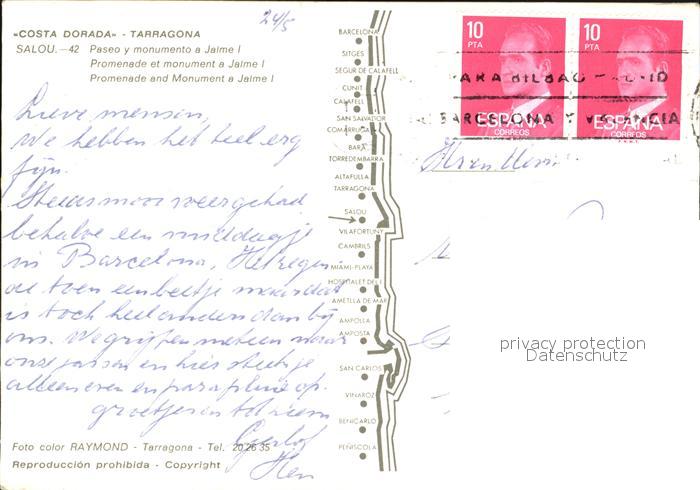 24/5
«COSTA DORADA» - TARRAGONA
SALOU.—42 Paseo y monumento a Jaime I
Promenade et monument a Jaime I
Promenade and Monument a Jaime I
Lieve mensen,
We hebben het heel erg
fijn.
Steeds mooi weer gehad
behalve een middagje
in Barcelona, Het regen-
de toen een beetje maar dat
is toch heel anders dan bij
ons. We grijpen meteen naar
onze jassen en hier steek je
alleen even en paraplu op.
groetjes en tot ziens
Foto color RAYMOND - Tarragona - Tel. 20 26 35
Reproducción prohibida - Copyright
BARCELONA
SITGES
SEGUR DE CALAFELL
CUNIT
CALAFELL
SAN SALVADOR
COMARRUGA
BARÁ
TORREDEMBARRA
ALTAFULLA
TARRAGONA
SALOU
VILAFORTUNY
CAMBRILS
MIAMI-PLAYA
HOSPITALET DEL
AMETLLA DE MAR
AMPOLLA
AMPOSTA
SAN CARLOS
VINAROZ
BENICARLO
PEÑISCOLA
10
PTA
ESPAÑA
CORREOS
10
PTA
ESPAÑA
CORREOS
PARA BILBAO
BARCELONA Y VALENCIA
privacy protection
Datenschutz